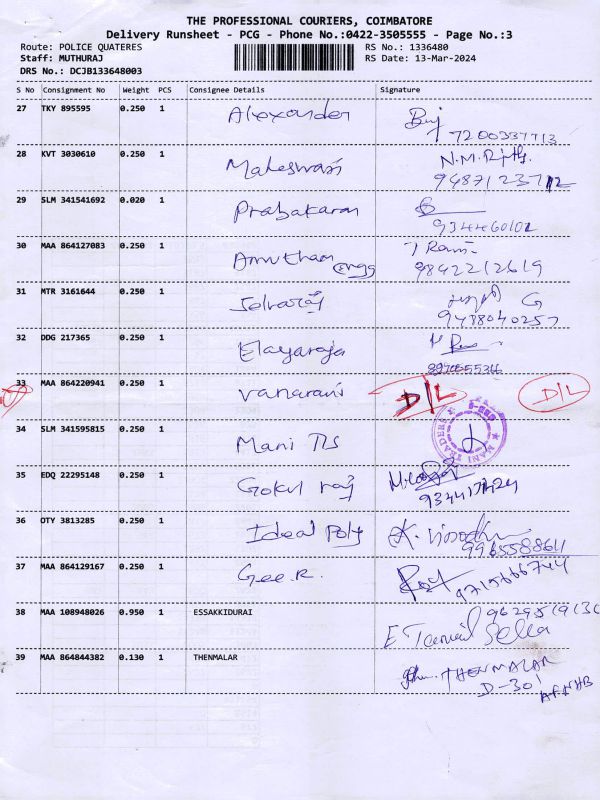 THE PROFESSIONAL COURIERS, COIMBATORE
Delivery Runsheet - PCG - Phone No.:0422-3505555 - Page No.:3
Route: POLICE QUATERES RS No.: 1336480
Staff: MUTHURAJ RS Date: 13-Mar-2024
DRS No.: DCJB133648003
S No Consignment No Weight PCS Consignee Details Signature
27 TKY 895595 0.250 1 Alexander
7200337713
28 KVT 3030610 0.250 1 Maheswari N.M.
9487123712
29 SLM 341541692 0.020 1 Prabakaran
934460102
30 MAA 864127083 0.250 1 Amutham Engg
9842212619
31 MTR 3161644 0.250 1 Selvaraj G
9488040257
32 DDG 217365 0.250 1 Elayaraja
33 MAA 864220941 0.250 1 Vanarani D/L D/L
34 SLM 341595815 0.250 1 Mani TLS
MANI TRADERS
35 EDQ 22295148 0.250 1 Gokul raj
36 OTY 3813285 0.250 1 Ideal Poly K.
9965588611
37 MAA 864129167 0.250 1 Gee.R.
9715666744
38 MAA 108948026 0.950 1 ESSAKKIDURAI
E Tamil Selva
39 MAA 864844382 0.130 1 THENMALAR THENMALAR
D-301
AFNHB